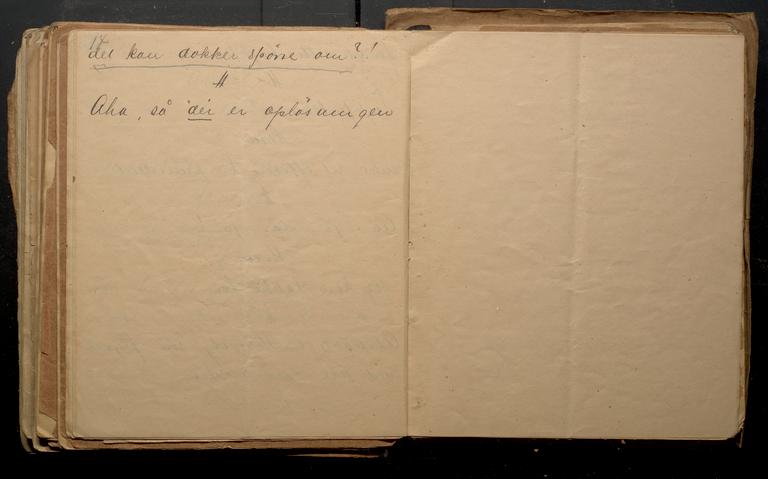 14
det kan dokker spörre om?!
H
Aha, så dér er oplösningen